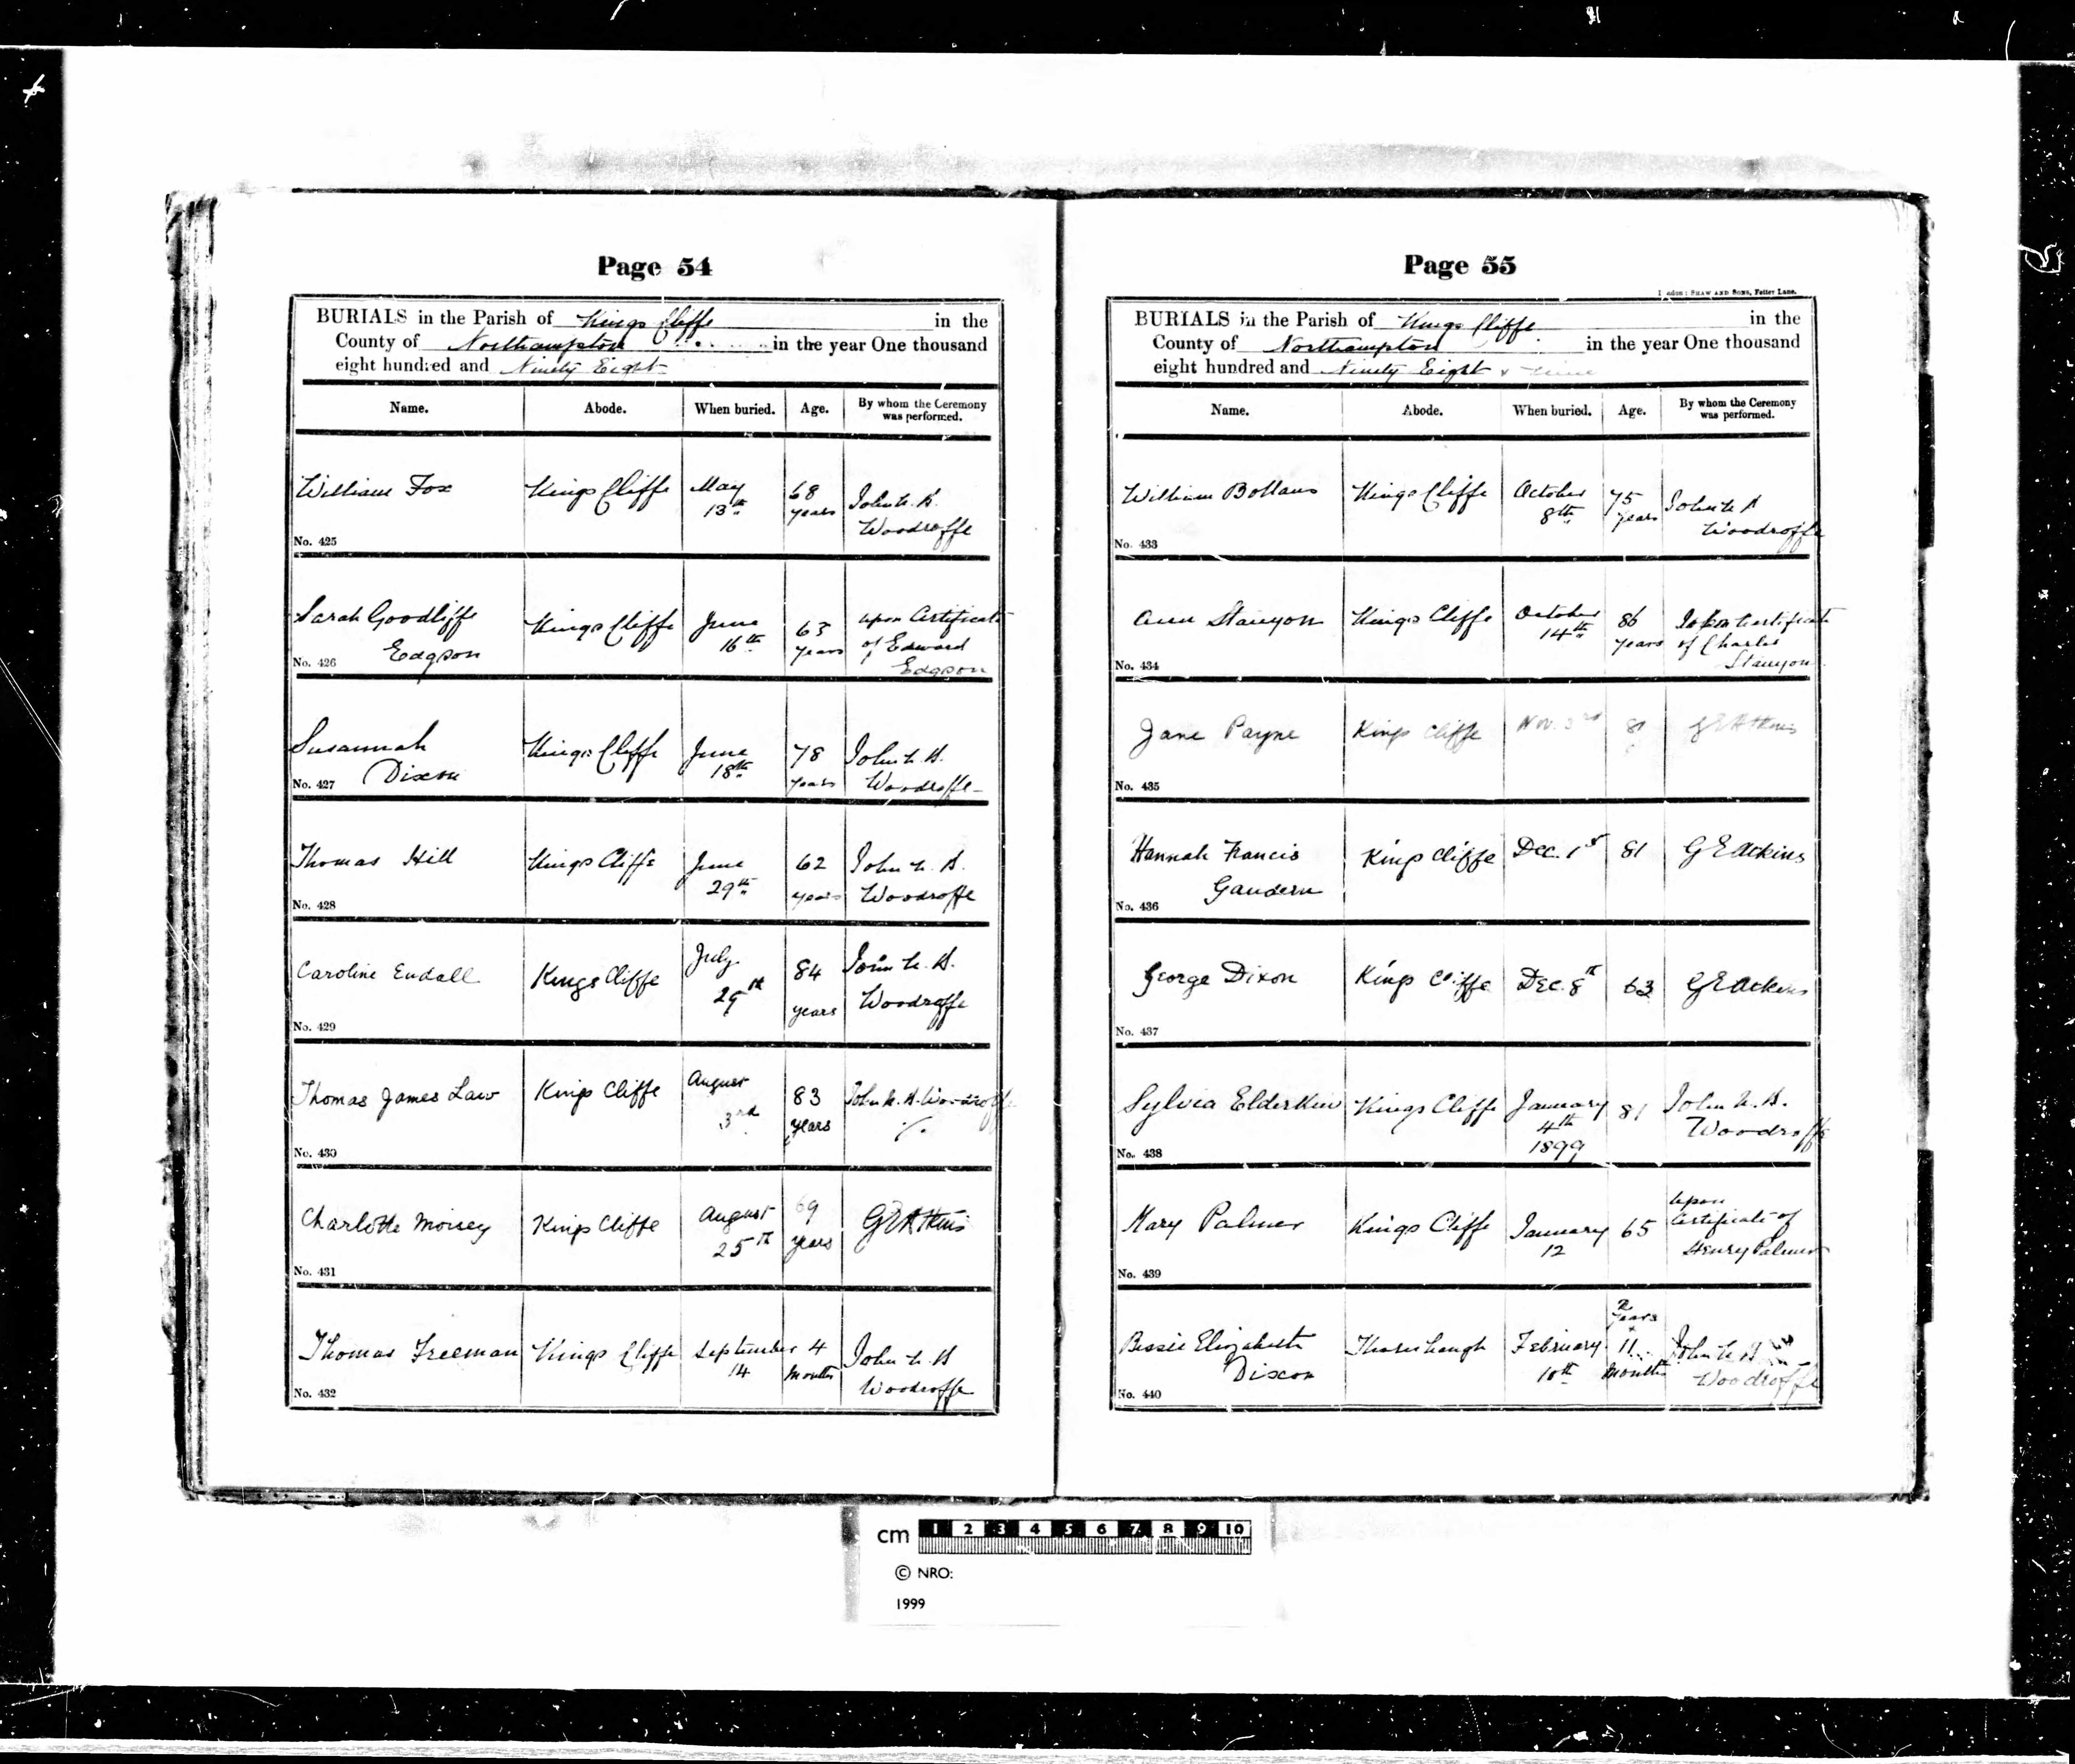 Page 54
BURIALS in the Parish of Kings Cliffe in the
County of Northampton in the year One thousand
eight hundred and Ninety Eight
Name. Abode. When buried. Age. By whom the Ceremony was performed.
William Fox Kings Cliffe May 13th 68 years John L. H. Woodroffe
No. 425
Sarah Goodliffe Edgson Kings Cliffe June 16th 63 years upon Certificate of Edward Edgson
No. 426
Susannah Dixon Kings Cliffe June 18th 78 years John L. H. Woodroffe
No. 427
Thomas Hill Kings Cliffe June 29th 62 years John L. H. Woodroffe
No. 428
Caroline Endall Kings Cliffe July 29th 84 years John L. H. Woodroffe
No. 429
Thomas James Law Kings Cliffe August 3rd 83 years John L. H. Woodroffe
No. 430
Charlotte Kings Cliffe August 25th 69 years G E Atkins
No. 431
Thomas Freeman Kings Cliffe September 14 4 Months John L H Woodroffe
No. 432
Page 55
London: SHAW AND SONS, Fetter Lane.
BURIALS in the Parish of Kings Cliffe in the
County of Northampton in the year One thousand
eight hundred and Ninety Eight & nine
Name. Abode. When buried. Age. By whom the Ceremony was performed.
William Bollans Kings Cliffe October 8th 75 years John L H Woodroffe
No. 433
Ann Stanyon Kings Cliffe October 14th 86 years Certificate of Charles Stanyon
No. 434
Jane Payne Kings Cliffe Nov. 3rd 81 G E Atkins
No. 435
Hannah Francis Gaudern Kings Cliffe Dec. 1st 81 G E Atkins
No. 436
George Dixon Kings Cliffe Dec. 8th 63 G E Atkins
No. 437
Sylvia Elderkin Kings Cliffe January 4th 1899 81 John L. H. Woodroffe
No. 438
Mary Palmer Kings Cliffe January 12 65 Upon Certificate of Henry Palmer
No. 439
Bessie Elizabeth Dixon February 10th 2 years 11 Months John L H Woodroffe
No. 440
cm 1 2 3 4 5 6 7 8 9 10
© NRO:
1999